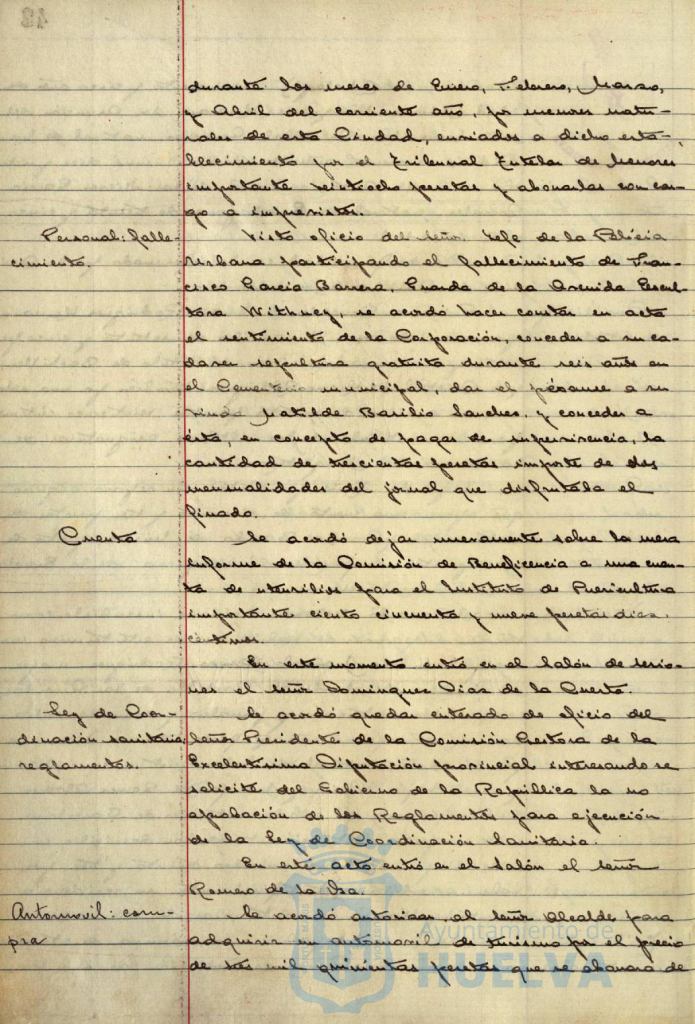 durante los meses de Enero, Febrero, Marzo,
y Abril del corriente año, por menores natu-
rales de esta Ciudad, enviados a dicho esta-
blecimiento por el Tribunal Tutelar de Menores
importante veintiocho pesetas y abonarlas con car-
go a imprevistos.
Personal: falle-
cimiento.
Visto oficio del Señor Jefe de la Policia
Urbana participando el fallecimiento de Fran-
cisco Garcia Barrera, Guarda de la Avenida Escul-
tora Withney, se acordó hacer constar en acta
el sentimiento de la Corporación, conceder a su ca-
daver sepultura gratuita durante seis años en
el Cementerio municipal, dar el pésame a su
viuda Matilde Basilio Sanchez, y conceder a
ésta, en concepto de pagas de supervivencia, la
cantidad de trescientas pesetas importe de dos
mensualidades del jornal que disfrutaba el
finado.
Cuenta
Se acordó dejar nuevamente sobre la mesa
informe de la Comisión de Beneficencia a una cuen-
ta de utensilios para el Instituto de Puericultura
importante ciento cincuenta y nueve pesetas diez
centimos.
En este momento entró en el Salón de sesio-
nes el señor Dominguez Diaz de la Cuesta.
Ley de Coor-
dinación sanitaria
reglamentos.
Se acordó quedar enterado de oficio del
Señor Presidente de la Comisión Gestora de la
Excelentisima Diputación provincial interesando se
solicite del Gobierno de la República la no
aprobación de los Reglamentos para ejecución
de la Ley de Coordinación Sanitaria.
En este acto entró en el Salón el señor
Romero de la Isa.
Automovil: com-
pra
Se acordó autorizar al señor Alcalde para
adquirir un automovil de turismo por el precio
de tres mil quinientas pesetas que se abonara de
Ayuntamiento de
HUELVA